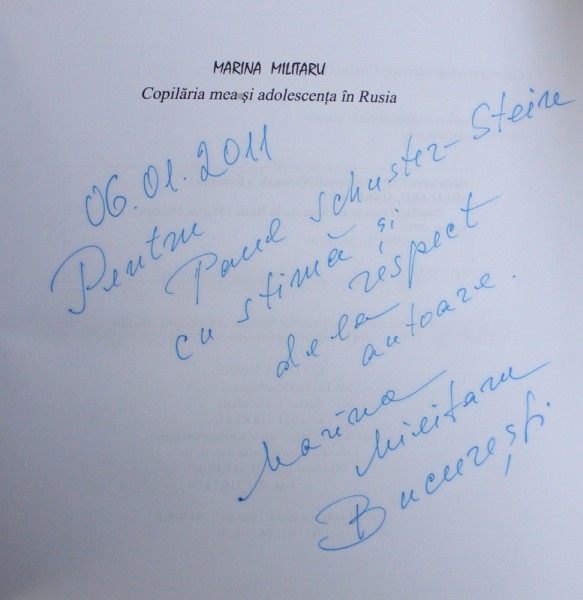 MARINA MILITARU
Copilăria mea și adolescența în Rusia
06.01.2011
Pentru
Paul Schuster-Stein
cu stimă și
respect
de la autoare.
Marina
Militaru
București